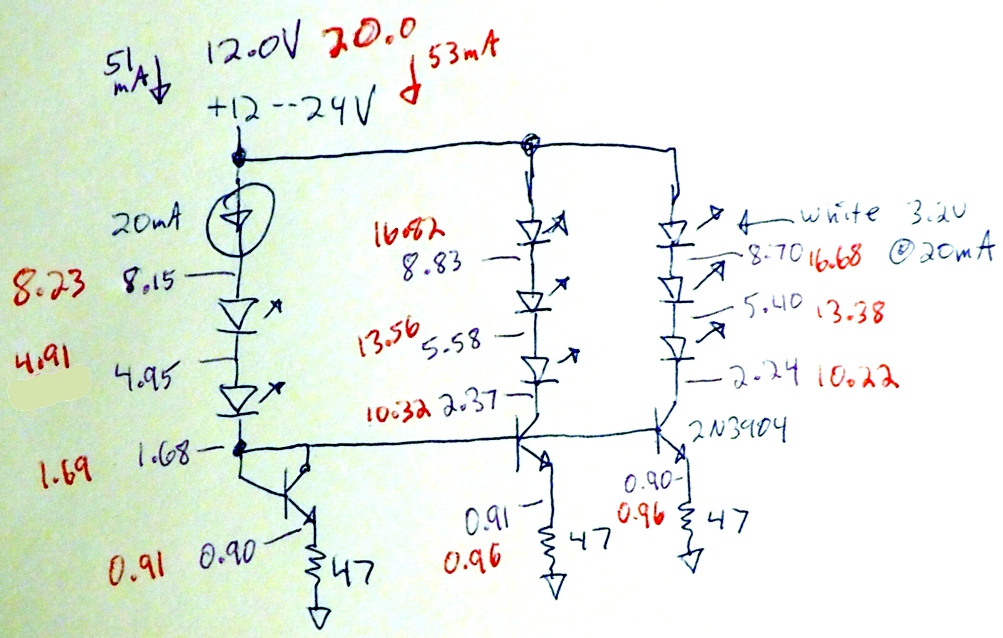 51 mA 12.0V 20.0 53mA
+12--24V
20mA
8.23 8.15
4.91 4.95
1.69 1.68
0.91 0.90
47
16.82
8.83
13.56 5.58
10.32 2.37
0.91
0.96
47
white 3.2V
@20mA
8.70 16.68
5.40 13.38
2.24 10.22
2N3904
0.90
0.96
47